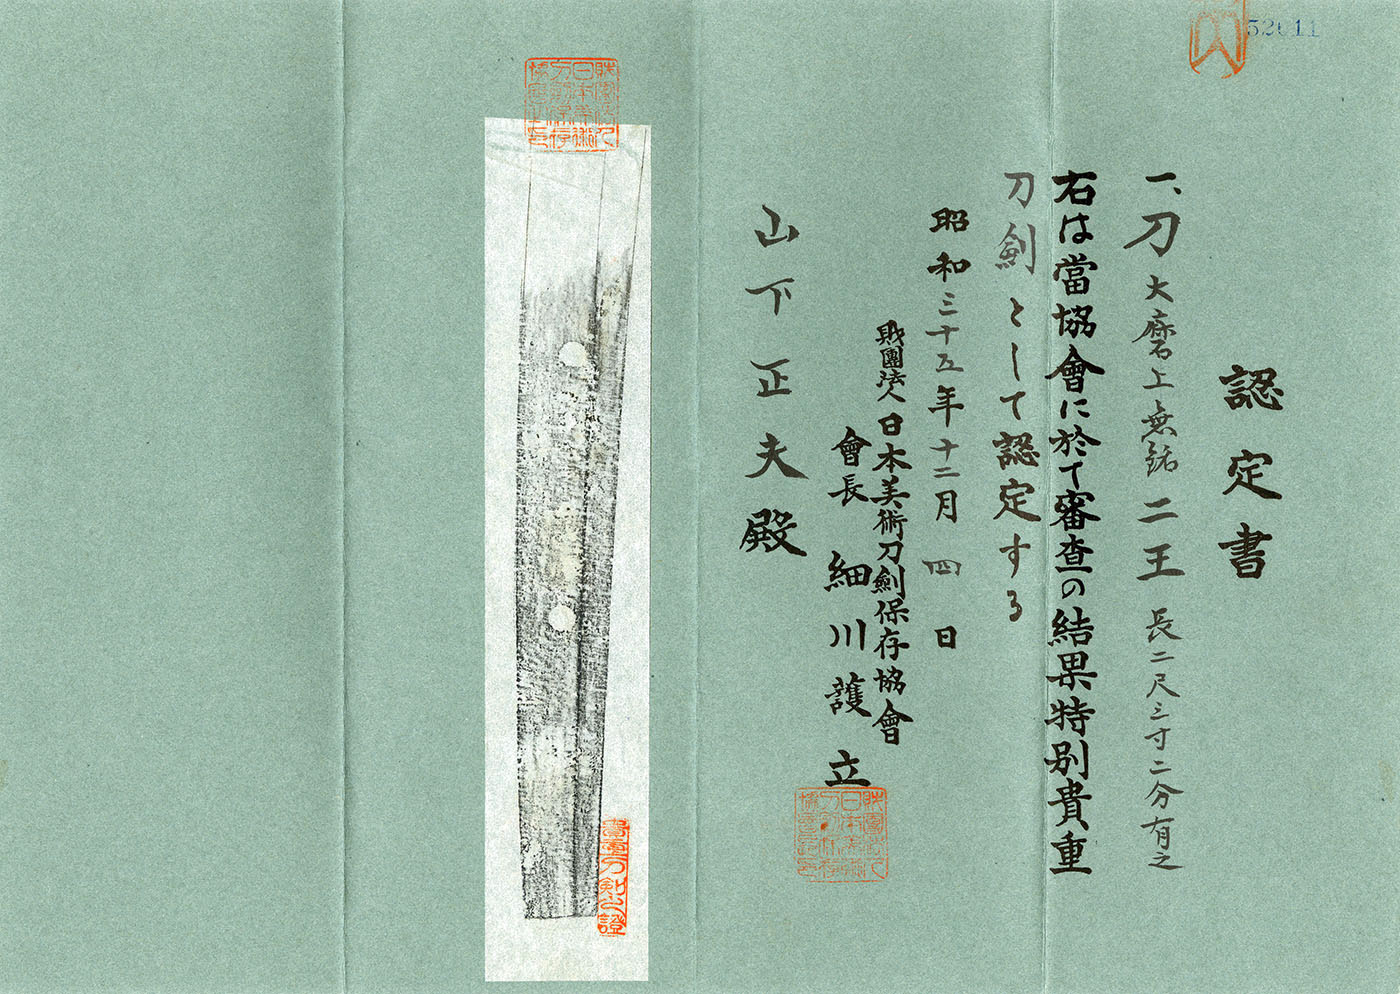 52011
認定書
一、刀 大磨上無銘 二王 長二尺三寸二分有之
右は當協會に於て審査の結果特別貴重
刀劍として認定する
昭和三十五年十二月四日
財團法人日本美術刀劍保存協會
會長 細川護立
山下正夫殿
財團法人
日本美術
刀劍保存
協會長印
貴重刀剣之證